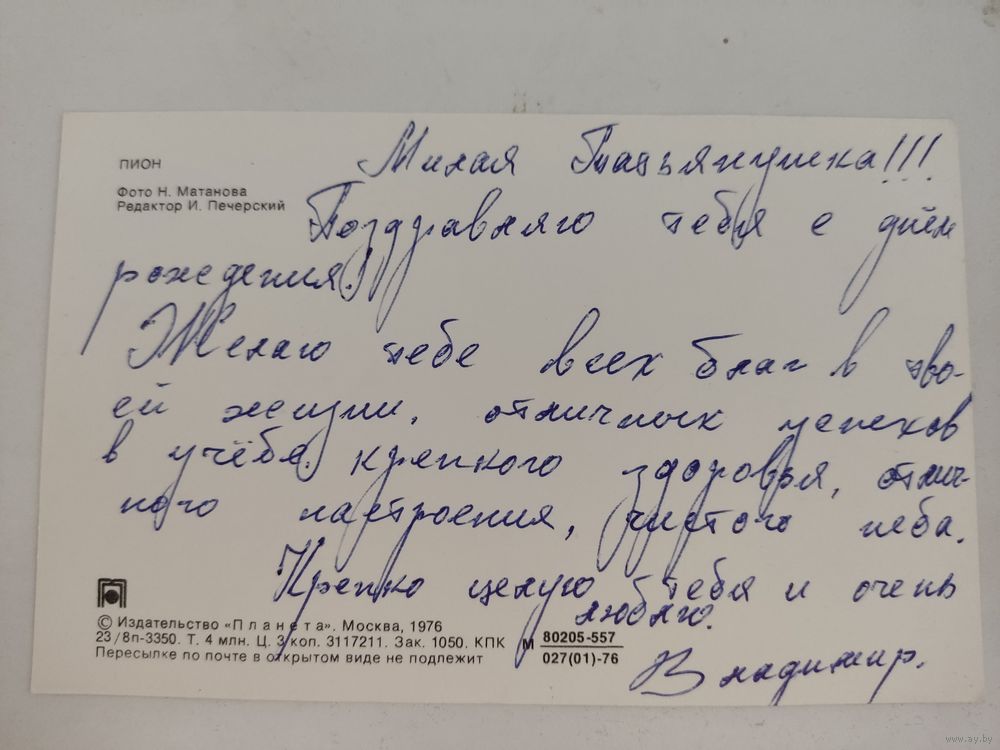 ПИОН
Фото Н. Матанова
Редактор И. Печерский
Милая Татьянушка!!!
Поздравляю тебя с днём
рождения!
Желаю тебе всех благ в тво-
ей жизни, отличных успехов
в учёбе, крепкого здоровья, отлич-
ного настроения, чистого неба.
Крепко целую тебя и очень
люблю.
Владимир.
© Издательство «Планета». Москва, 1976
23/8п-3350. Т. 4 млн. Ц. 3 коп. 3117211. Зак. 1050. КПК
Пересылке по почте в открытом виде не подлежит
М 80205-557
027(01)-76
www.ay.by